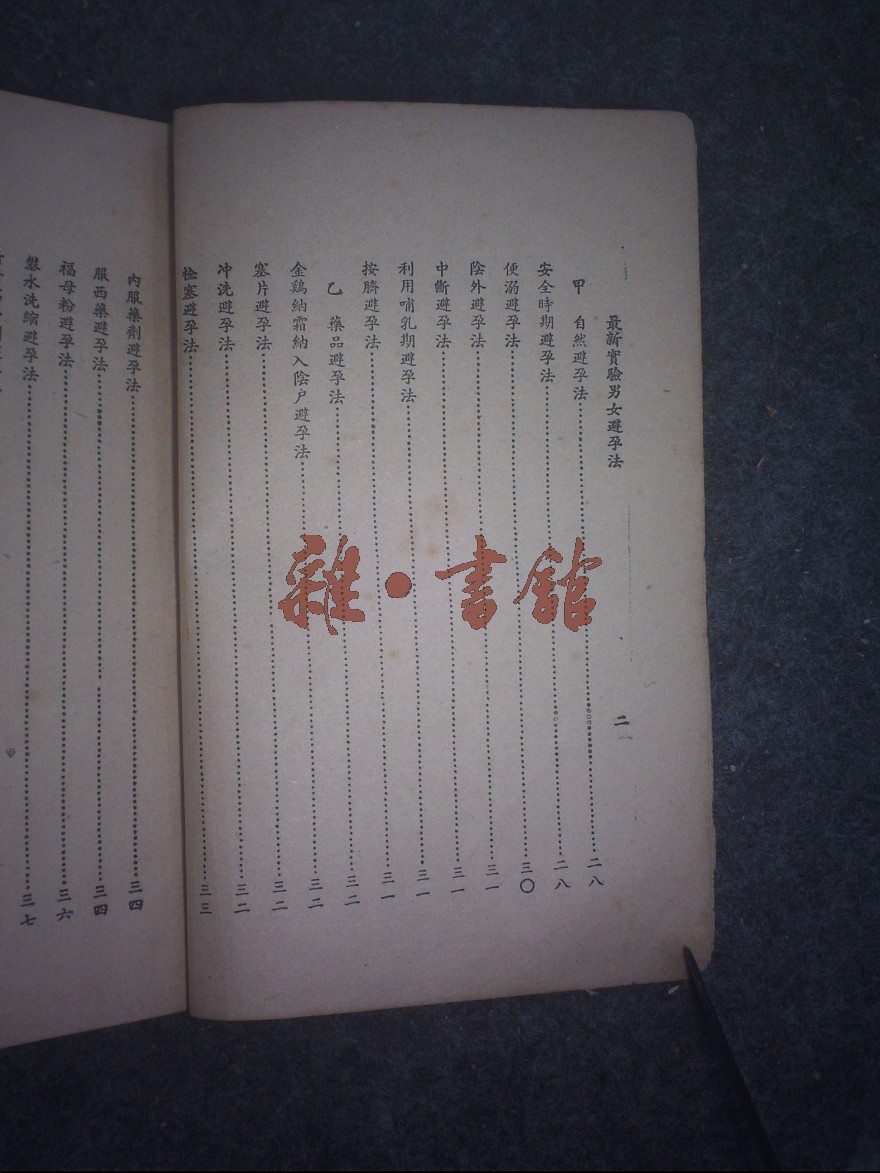 最新實驗男女避孕法
二
甲 自然避孕法 二八
安全時期避孕法 二八
便溺避孕法 三〇
陰外避孕法 三一
中斷避孕法 三一
利用哺乳期避孕法 三一
按臍避孕法 三一
乙 藥品避孕法 三二
金鷄納霜納入陰戶避孕法 三二
塞片避孕法 三二
冲洗避孕法 三二
栓塞避孕法 三三
內服藥劑避孕法 三四
服西藥避孕法 三四
福母粉避孕法 三六
水洗縮避孕法 三七
雜·書館